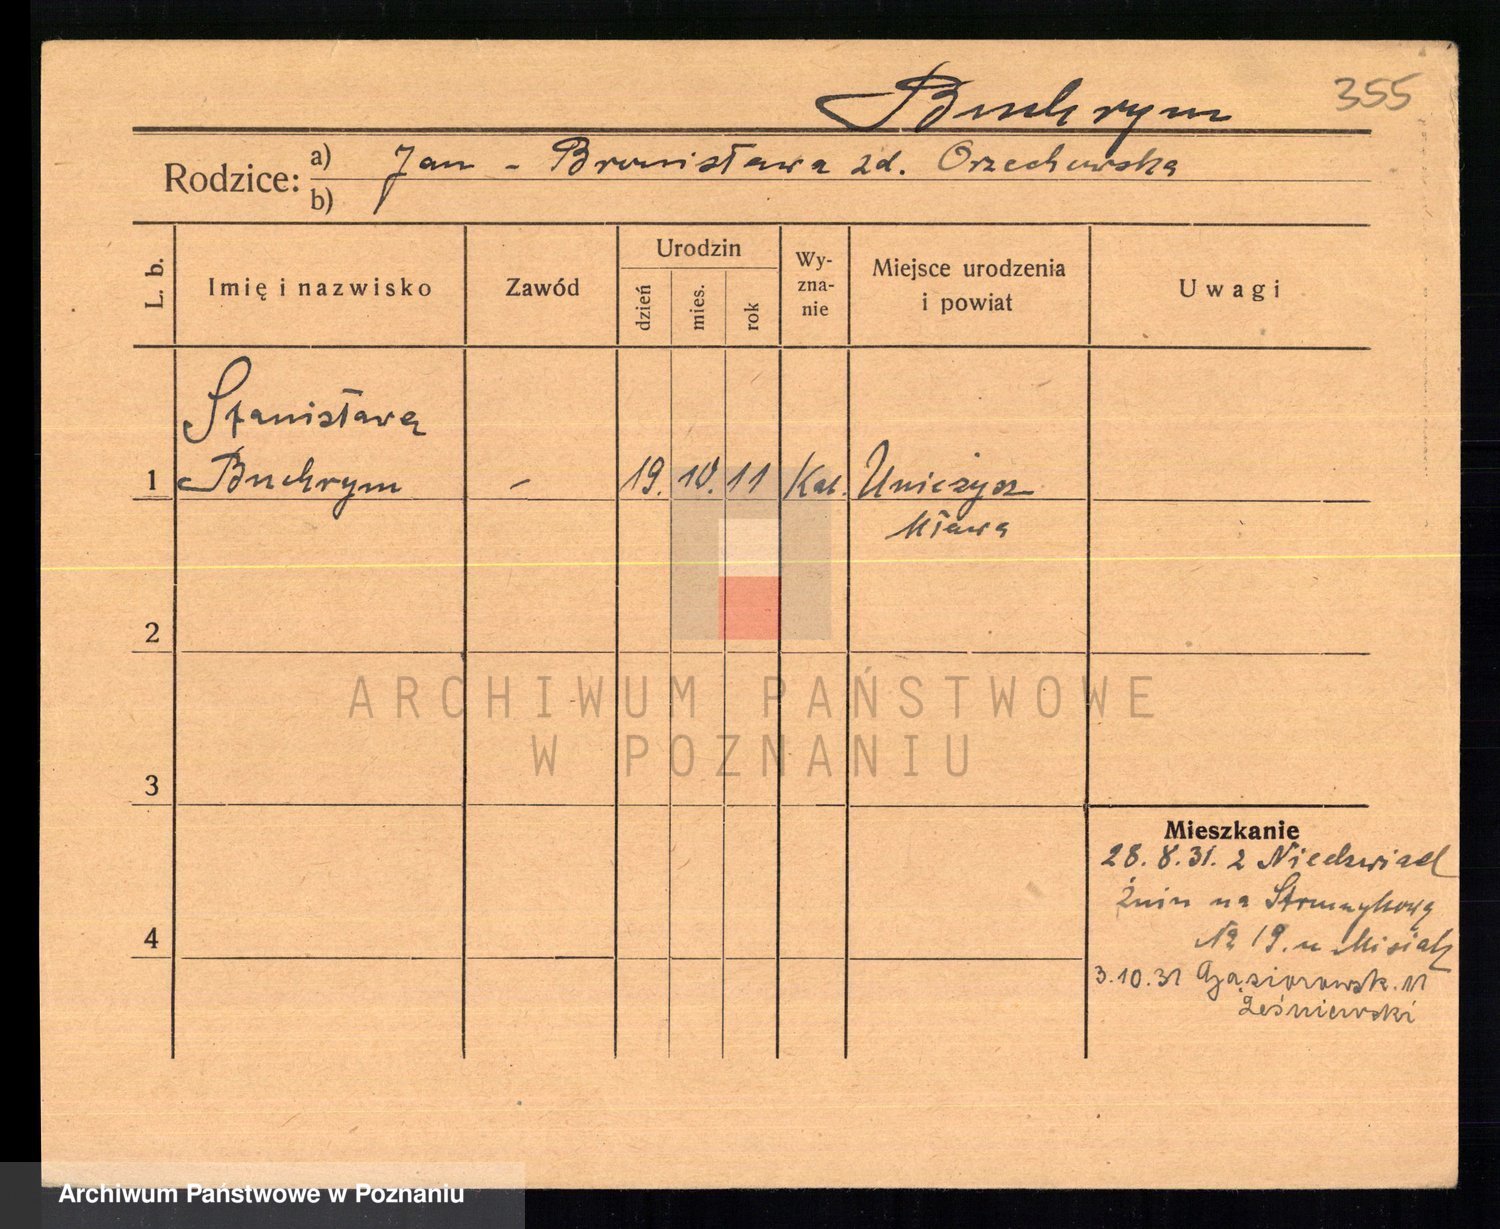 Buchrym 355
Rodzice: a) Jan - Bronisława zd. Orzechowska
b)
L. b. Imię i nazwisko Zawód Urodzin dzień mies. rok Wy-zna-nie Miejsce urodzenia i powiat Uwagi
Stanisława
1 Buchrym - 19. 10. 11 Kat.
Mława
2
ARCHIWUM PAŃSTWOWE
W POZNANIU
3
Mieszkanie
28. 8. 31. z Niedzwiad
Żnin na
No 19. u
4
3.10.31 Gąsiorowsk. 11
Leśniewski
Archiwum Państwowe w Poznaniu